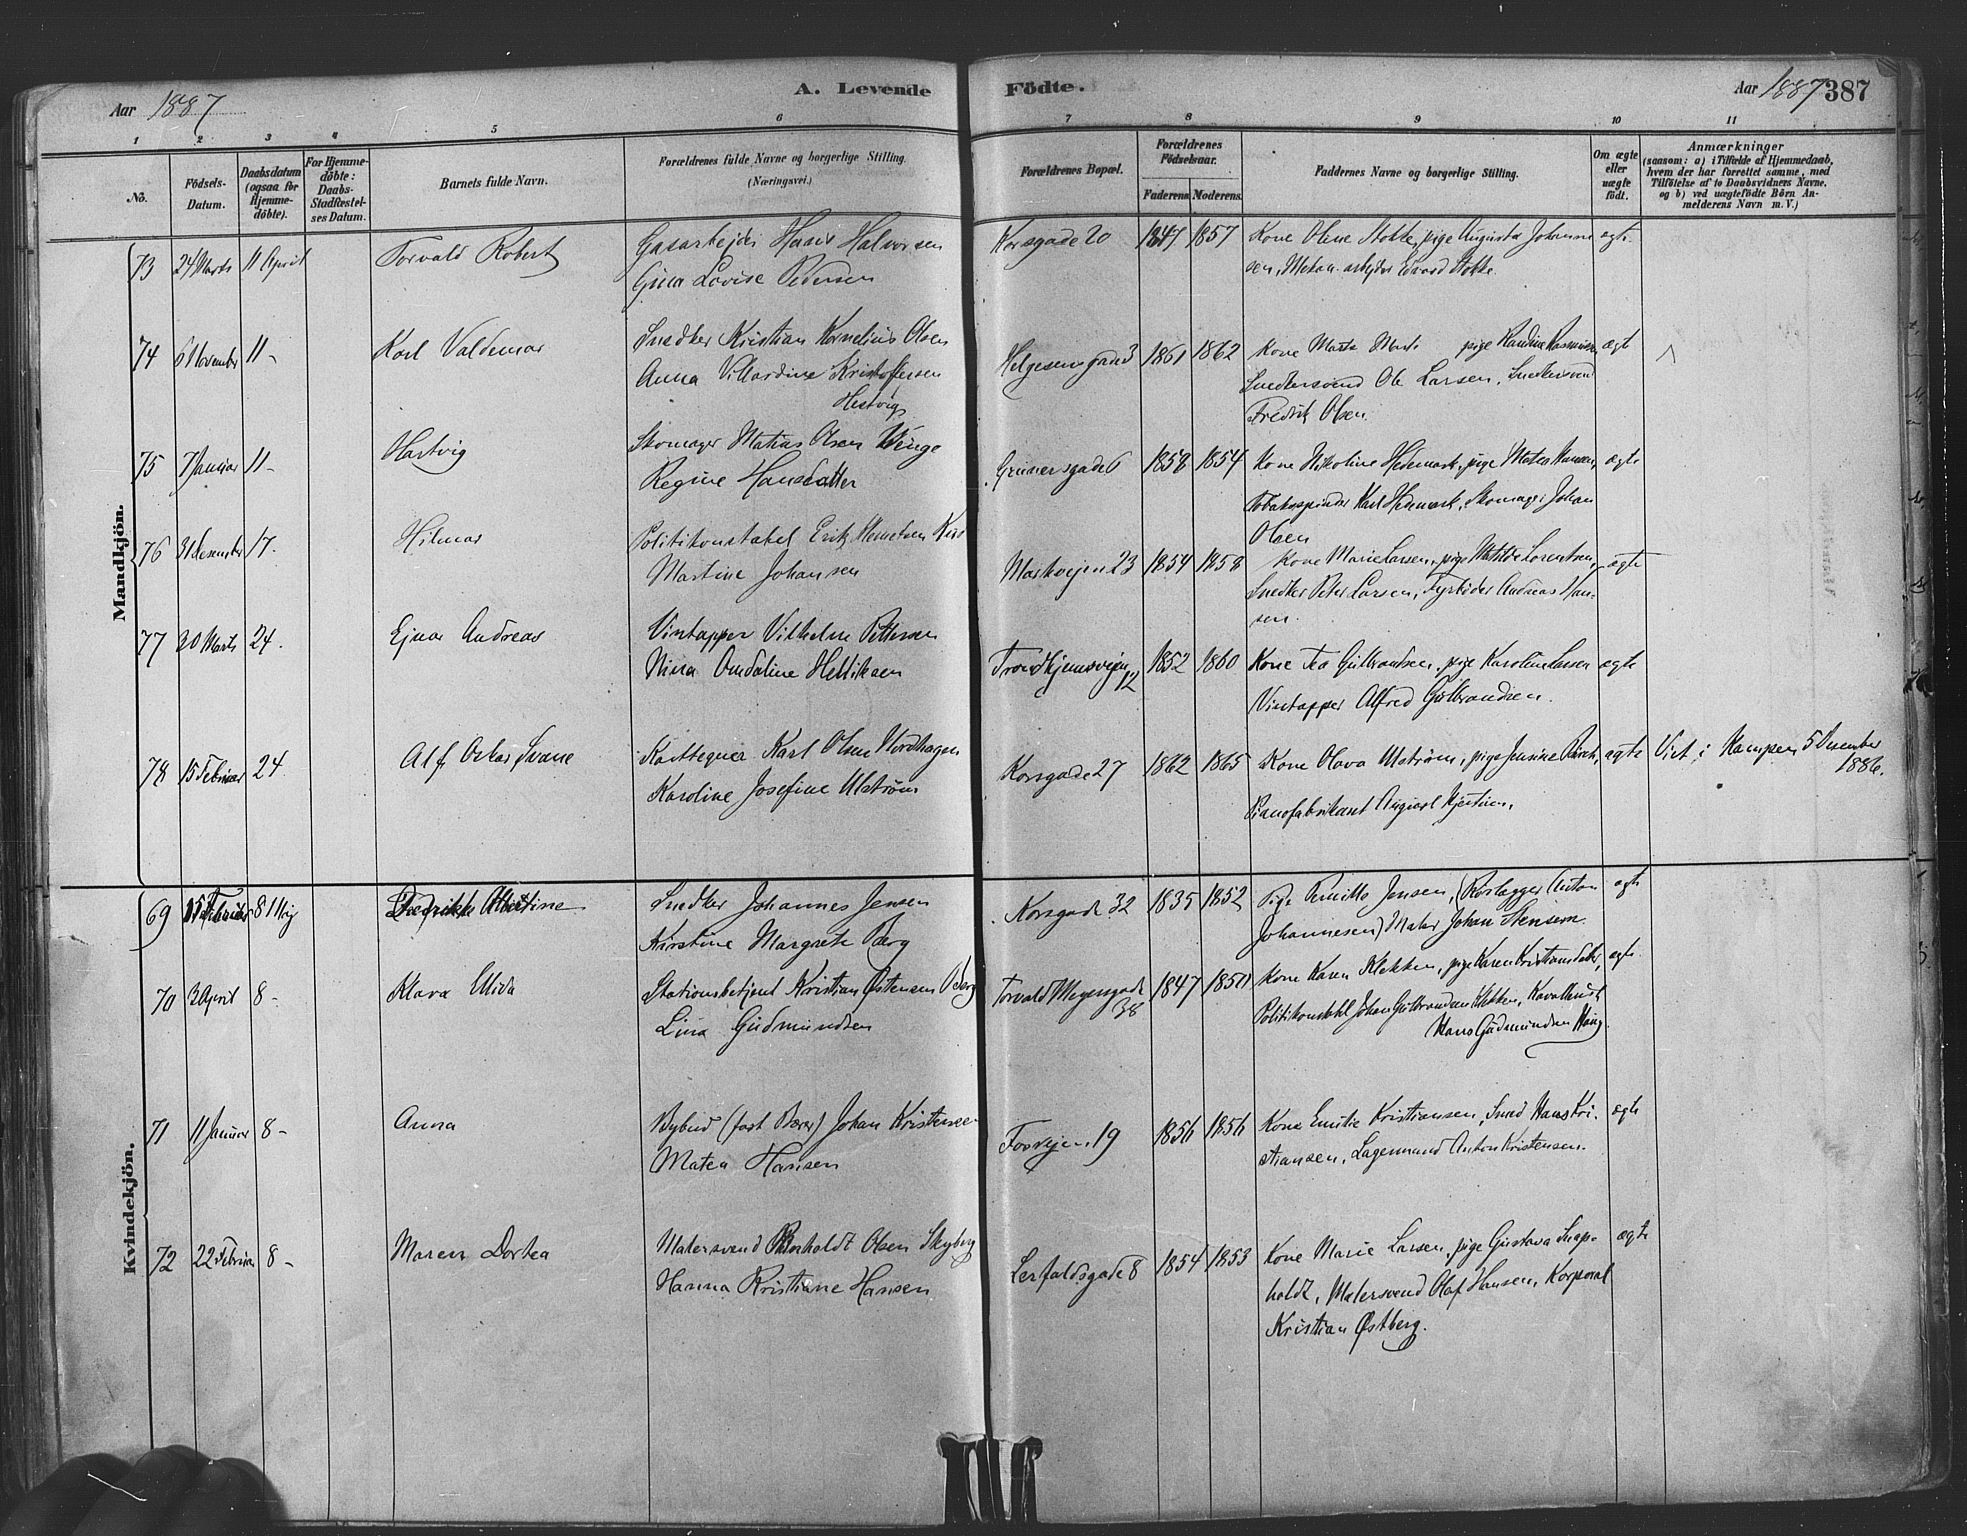 Aar 1887 A. Levende Födte. Aar 1887 387
1 2 3 4 5 6 7 8 9 10 11
No. Födsels-Datum. Daabsdatum (ogsaa for Hjemmedöbte). For Hjemmedöbte: Daabs-Stadfæstelses Datum. Barnets fulde Navn. Forældrenes fulde Navne og borgerlige Stilling. (Næringsvei.) Forældrenes Bopæl. Forældrenes Födselsaar. Faderens Moderens. Faddernes Navne og borgerlige Stilling. Om ægte eller uægte födt. Anmærkninger (saasom: a) i Tilfælde af Hjemmedaab, hvem der har forrettet samme, med Tilföielse af to Daabsvidners Navne, og b) ved uægtefödte Börn Anmelderens Navn m. V.)
Mandkjön.
73 24 Marts 11 April Torvald Robert Gasarbejder Hans Halvorsen Korsgade 20 1847 1857 Kone Oline Stokke, pige Augusta Johanne ægte
Gina Lovise Pedersen sen, Mekan. arbejder Edvard Stokke.
74 6 November 11 - Karl Valdemar Snedker Kristian Kornelius Olsen Helgesensgade 3 1861 1862 Kone Marte pige Randine Rasmussen ægte
Anna Villardine Kristoffersen Snedkersvend Ole Larsen, Snedkersvend
Hestvig Fredrik Olsen.
75 7 Januar 11 - Hartvig Skomager Matias Olsen Winge Grünersgade 6 1858 1854 Kone Nikoline Hedemark, pige Mates Hansen, ægte
Regine Hansdatter Tobakspinder Karl Hedemark, Skomager Johan
Olsen
76 31 Desember 17. Hilmar Politikonstabel Erik Martine Johansen Markvejen 23 1854 1858 Kone Marie Larsen, pige Matilde Lorentsen, ægte
Snedker Peter Larsen, Fyrböder Andreas Han-
sen.
77 20 Marts 24. Ejnar Andreas Vintapper Vilhelm Pettersen Trondhjemsvejen 12 1852 1860 Kone Tea Gulbrandsen, pige Karoline Larsen ægte
Nina Omdaline Helliksen Vintapper Alfred Gulbrandsen.
78 15 Februar 24. Alf Oskar Svane Karttegner Karl Olsen Nordhagen Korsgade 27 1862 1865 Kone Olava Ulström, pige Jensine ægte Viet i Kampen 5 Desember 1886.
Karoline Josefine Ulström Pianofabrikant August
Kvindekjön.
69 15 Februar 8 Maj Fredrikke Albertine Snedker Johannes Jensen Korsgade 32 1835 1852 Pige Jensen, (Anton ægte
Kirstine Margrete Berg Johannesen) Maler Johan Stensen.
70 3 April 8 - Klara Elida Stationsbetjent Kristian Østensen Berg Torvald Meyersgade 38 1847 1850 Kone Karen Klekken, pige Karen Kristiansdatter, ægte
Lina Gudmundsen Politikonstabel Johan Gulbrandsen Klekken, Kavallerist
Hans Gudmundsen Haug.
71 11 Januar 8 - Anna Bybud (fast Bærer) Johan Kristensen Fossvejen 19 1856 1856 Kone Emilie Kristiansen, Smed Hans Kri- ægte
Matea Hansen stiansen, Lagermand Anton Kristensen.
72 22 Februar 8 - Maren Dortea Malersvend Bernholdt Olsen Skyberg Lerfaldsgade 8 1854 1853 Kone Marie Larsen, pige Gustava Snap- ægte
Hanna Kristiane Hansen holdt, Malersvend Olaf Hansen, Korporal
Kristian Østberg.